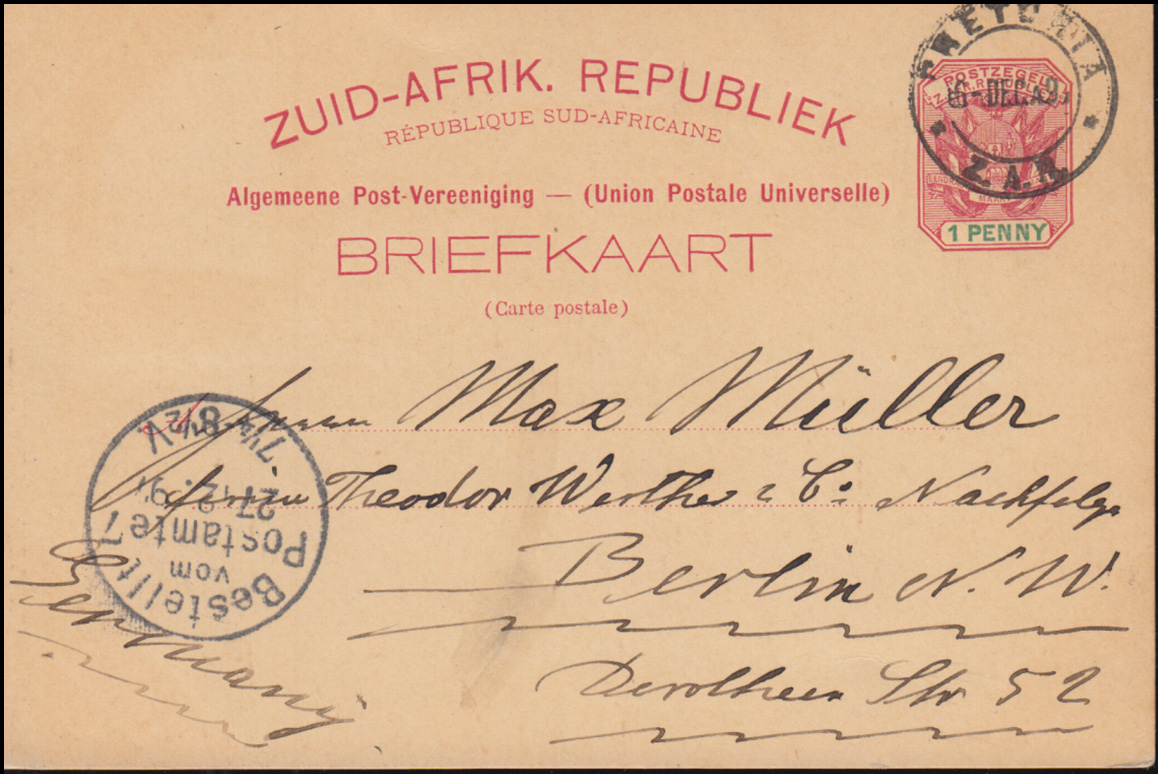 ZUID-AFRIK. REPUBLIEK
RÉPUBLIQUE SUD-AFRICAINE
Algemeene Post-Vereeniging — (Union Postale Universelle)
BRIEFKAART
(Carte postale)
PRETORIA
6-DEC. 9
Z.A.R.
POSTZEGEL
1 PENNY
Herrn Max Müller
Firma Theodor Werther & Co Nachfolge
Berlin N.W.
Dorotheen Str 52
Germany
Bestellt
vom
Postamte 7
27.12.9
7¼-8½V.